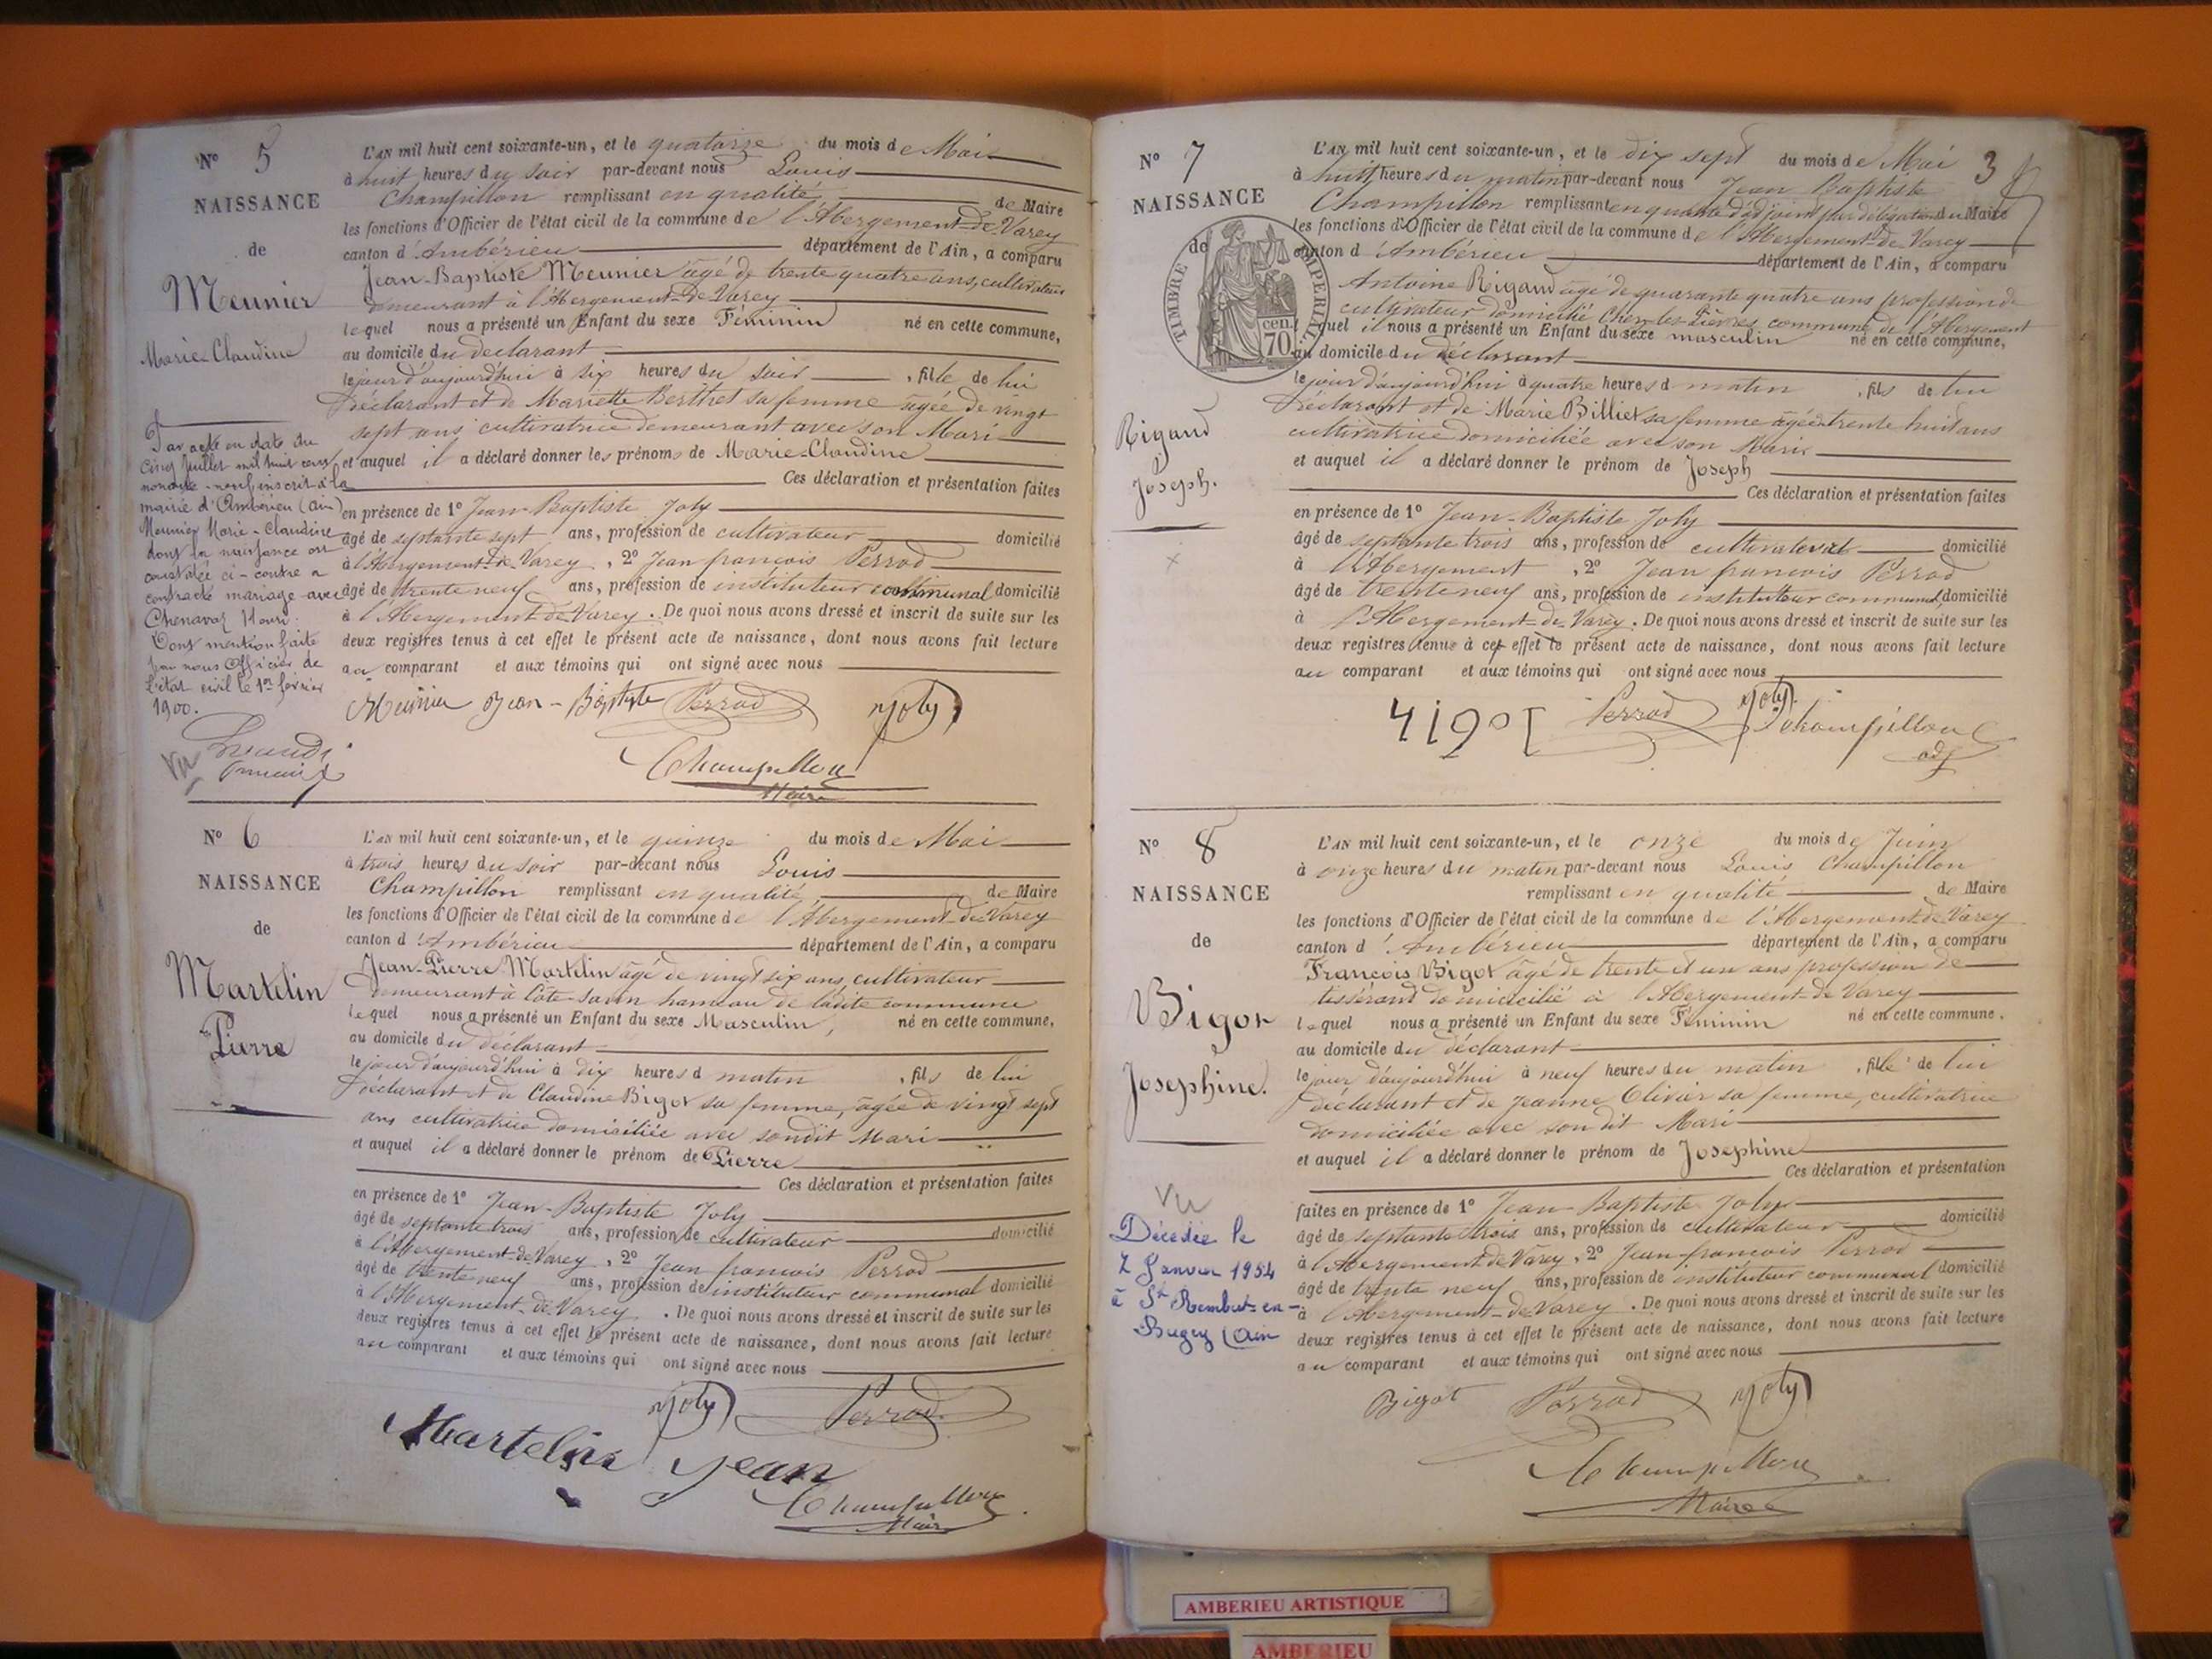 N° 5
NAISSANCE
de
Meunier
Marie-Claudine
L'AN mil huit cent soixante-un, et le quatorze du mois de Mai
à huit heures du soir par-devant nous Louis
Champillon remplissant en qualité de Maire
les fonctions d'Officier de l'état civil de la commune de l'Abergement-de-Varey
canton d'Ambérieu département de l'Ain, a comparu
Jean-Baptiste Meunier âgé de trente quatre ans, cultivateur
demeurant à l'Abergement-de-Varey
lequel nous a présenté un Enfant du sexe Féminin né en cette commune,
au domicile du déclarant
le jour d'aujourd'hui à six heures du soir, fille de lui
déclarant et de Mariette Berthet sa femme âgée de vingt
sept ans cultivatrice demeurant avec son Mari
et auquel il a déclaré donner les prénoms de Marie-Claudine
Ces déclaration et présentation faites
en présence de 1° Jean-Baptiste Joly
âgé de septante sept ans, profession de cultivateur domicilié
à l'Abergement-de-Varey, 2° Jean françois Perrod
âgé de trente neuf ans, profession de instituteur communal domicilié
à l'Abergement-de-Varey. De quoi nous avons dressé et inscrit de suite sur les
deux registres tenus à cet effet le présent acte de naissance, dont nous avons fait lecture
au comparant et aux témoins qui ont signé avec nous
Meunier Jean-Baptiste Perrod Joly
Champillon
Maire
Par acte en date du
cinq Juillet mil huit cent
nonante-neuf, inscrit à la
mairie d'Ambérieu (Ain)
Meunier Marie-Claudine
dont la naissance est
constatée ci-contre a
contracté mariage avec
Chenaval Henri.
Dont mention faite
par nous Officier de
l'état civil le 1er février
1900.
Vu
N° 6
NAISSANCE
de
Martelin
Pierre
L'AN mil huit cent soixante-un, et le quinze du mois de Mai
à trois heures du soir par-devant nous Louis
Champillon remplissant en qualité de Maire
les fonctions d'Officier de l'état civil de la commune de l'Abergement-de-Varey
canton d'Ambérieu département de l'Ain, a comparu
Jean-Pierre Martelin âgé de vingt six ans, cultivateur
demeurant à Côte-Savin hameau de ladite commune
lequel nous a présenté un Enfant du sexe Masculin, né en cette commune,
au domicile du déclarant
le jour d'aujourd'hui à dix heures d matin, fils de lui
déclarant et de Claudine Bigot sa femme, âgée de vingt sept
ans cultivatrice domiciliée avec sondit Mari
et auquel il a déclaré donner le prénom de Pierre
Ces déclaration et présentation faites
en présence de 1° Jean-Baptiste Joly
âgé de septante trois ans, profession de cultivateur domicilié
à l'Abergement-de-Varey, 2° Jean françois Perrod
âgé de trente neuf ans, profession de instituteur communal domicilié
à l'Abergement-de-Varey. De quoi nous avons dressé et inscrit de suite sur les
deux registres tenus à cet effet le présent acte de naissance, dont nous avons fait lecture
au comparant et aux témoins qui ont signé avec nous
Joly Perrod
Martelin Jean
Champillon
Maire
3
N° 7
NAISSANCE
de
TIMBRE IMPERIAL
70 cen.
Rigaud
Joseph.
L'AN mil huit cent soixante-un, et le dix sept du mois de Mai
à huit heures du matin par-devant nous Jean Baptiste
Champillon remplissant en qualité d'adjoint par délégation du Maire
les fonctions d'Officier de l'état civil de la commune de l'Abergement-de-Varey
canton d'Ambérieu département de l'Ain, a comparu
Antoine Rigaud âgé de quarante quatre ans profession de
cultivateur domicilié Chez-les-Lièvres commune de l'Abergement
lequel il nous a présenté un Enfant du sexe masculin né en cette commune,
au domicile du déclarant
le jour d'aujourd'hui à quatre heures d matin, fils de lui
déclarant et de Marie Billiet sa femme âgée trente huit ans
cultivatrice domiciliée avec son Mari
et auquel il a déclaré donner le prénom de Joseph
Ces déclaration et présentation faites
en présence de 1° Jean-Baptiste Joly
âgé de septante trois ans, profession de cultivateur domicilié
à l'Abergement, 2° Jean francois Perrod
âgé de trente neuf ans, profession de instituteur communal domicilié
à l'Abergement-de-Varey. De quoi nous avons dressé et inscrit de suite sur les
deux registres tenus à cet effet le présent acte de naissance, dont nous avons fait lecture
au comparant et aux témoins qui ont signé avec nous
Perrod Joly Champillon
adj
N° 8
NAISSANCE
de
Bigot
Josephine.
L'AN mil huit cent soixante-un, et le onze du mois de Juin
à onze heures du matin par-devant nous Louis Champillon
remplissant en qualité de Maire
les fonctions d'Officier de l'état civil de la commune de l'Abergement-de-Varey
canton d'Ambérieu département de l'Ain, a comparu
François Bigot âgé de trente et un ans profession de
tisserand domicilié à l'Abergement-de-Varey
lequel nous a présenté un Enfant du sexe Féminin né en cette commune.
au domicile du déclarant
le jour d'aujourd'hui à neuf heures du matin, fille de lui
déclarant et de Jeanne Olivier sa femme, cultivatrice
domiciliée avec son dit Mari
et auquel il a déclaré donner le prénom de Josephine
Ces déclaration et présentation
faites en présence de 1° Jean-Baptiste Joly
âgé de septante trois ans, profession de cultivateur domicilié
à l'Abergement-de-Varey, 2° Jean-francois Perrod
âgé de trente neuf ans, profession de instituteur communal domicilié
à l'Abergement-de-Varey. De quoi nous avons dressé et inscrit de suite sur les
deux registres tenus à cet effet le présent acte de naissance, dont nous avons fait lecture
au comparant et aux témoins qui ont signé avec nous
Bigot Perrod Joly
Champillon
Maire
Vu
Décédée le
7 Janvier 1954
à St Rambert-en-
Bugey (Ain
AMBERIEU ARTISTIQUE
AMBERIEU